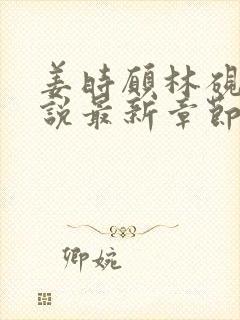 姜時願林硯
說最新章節
卿婉